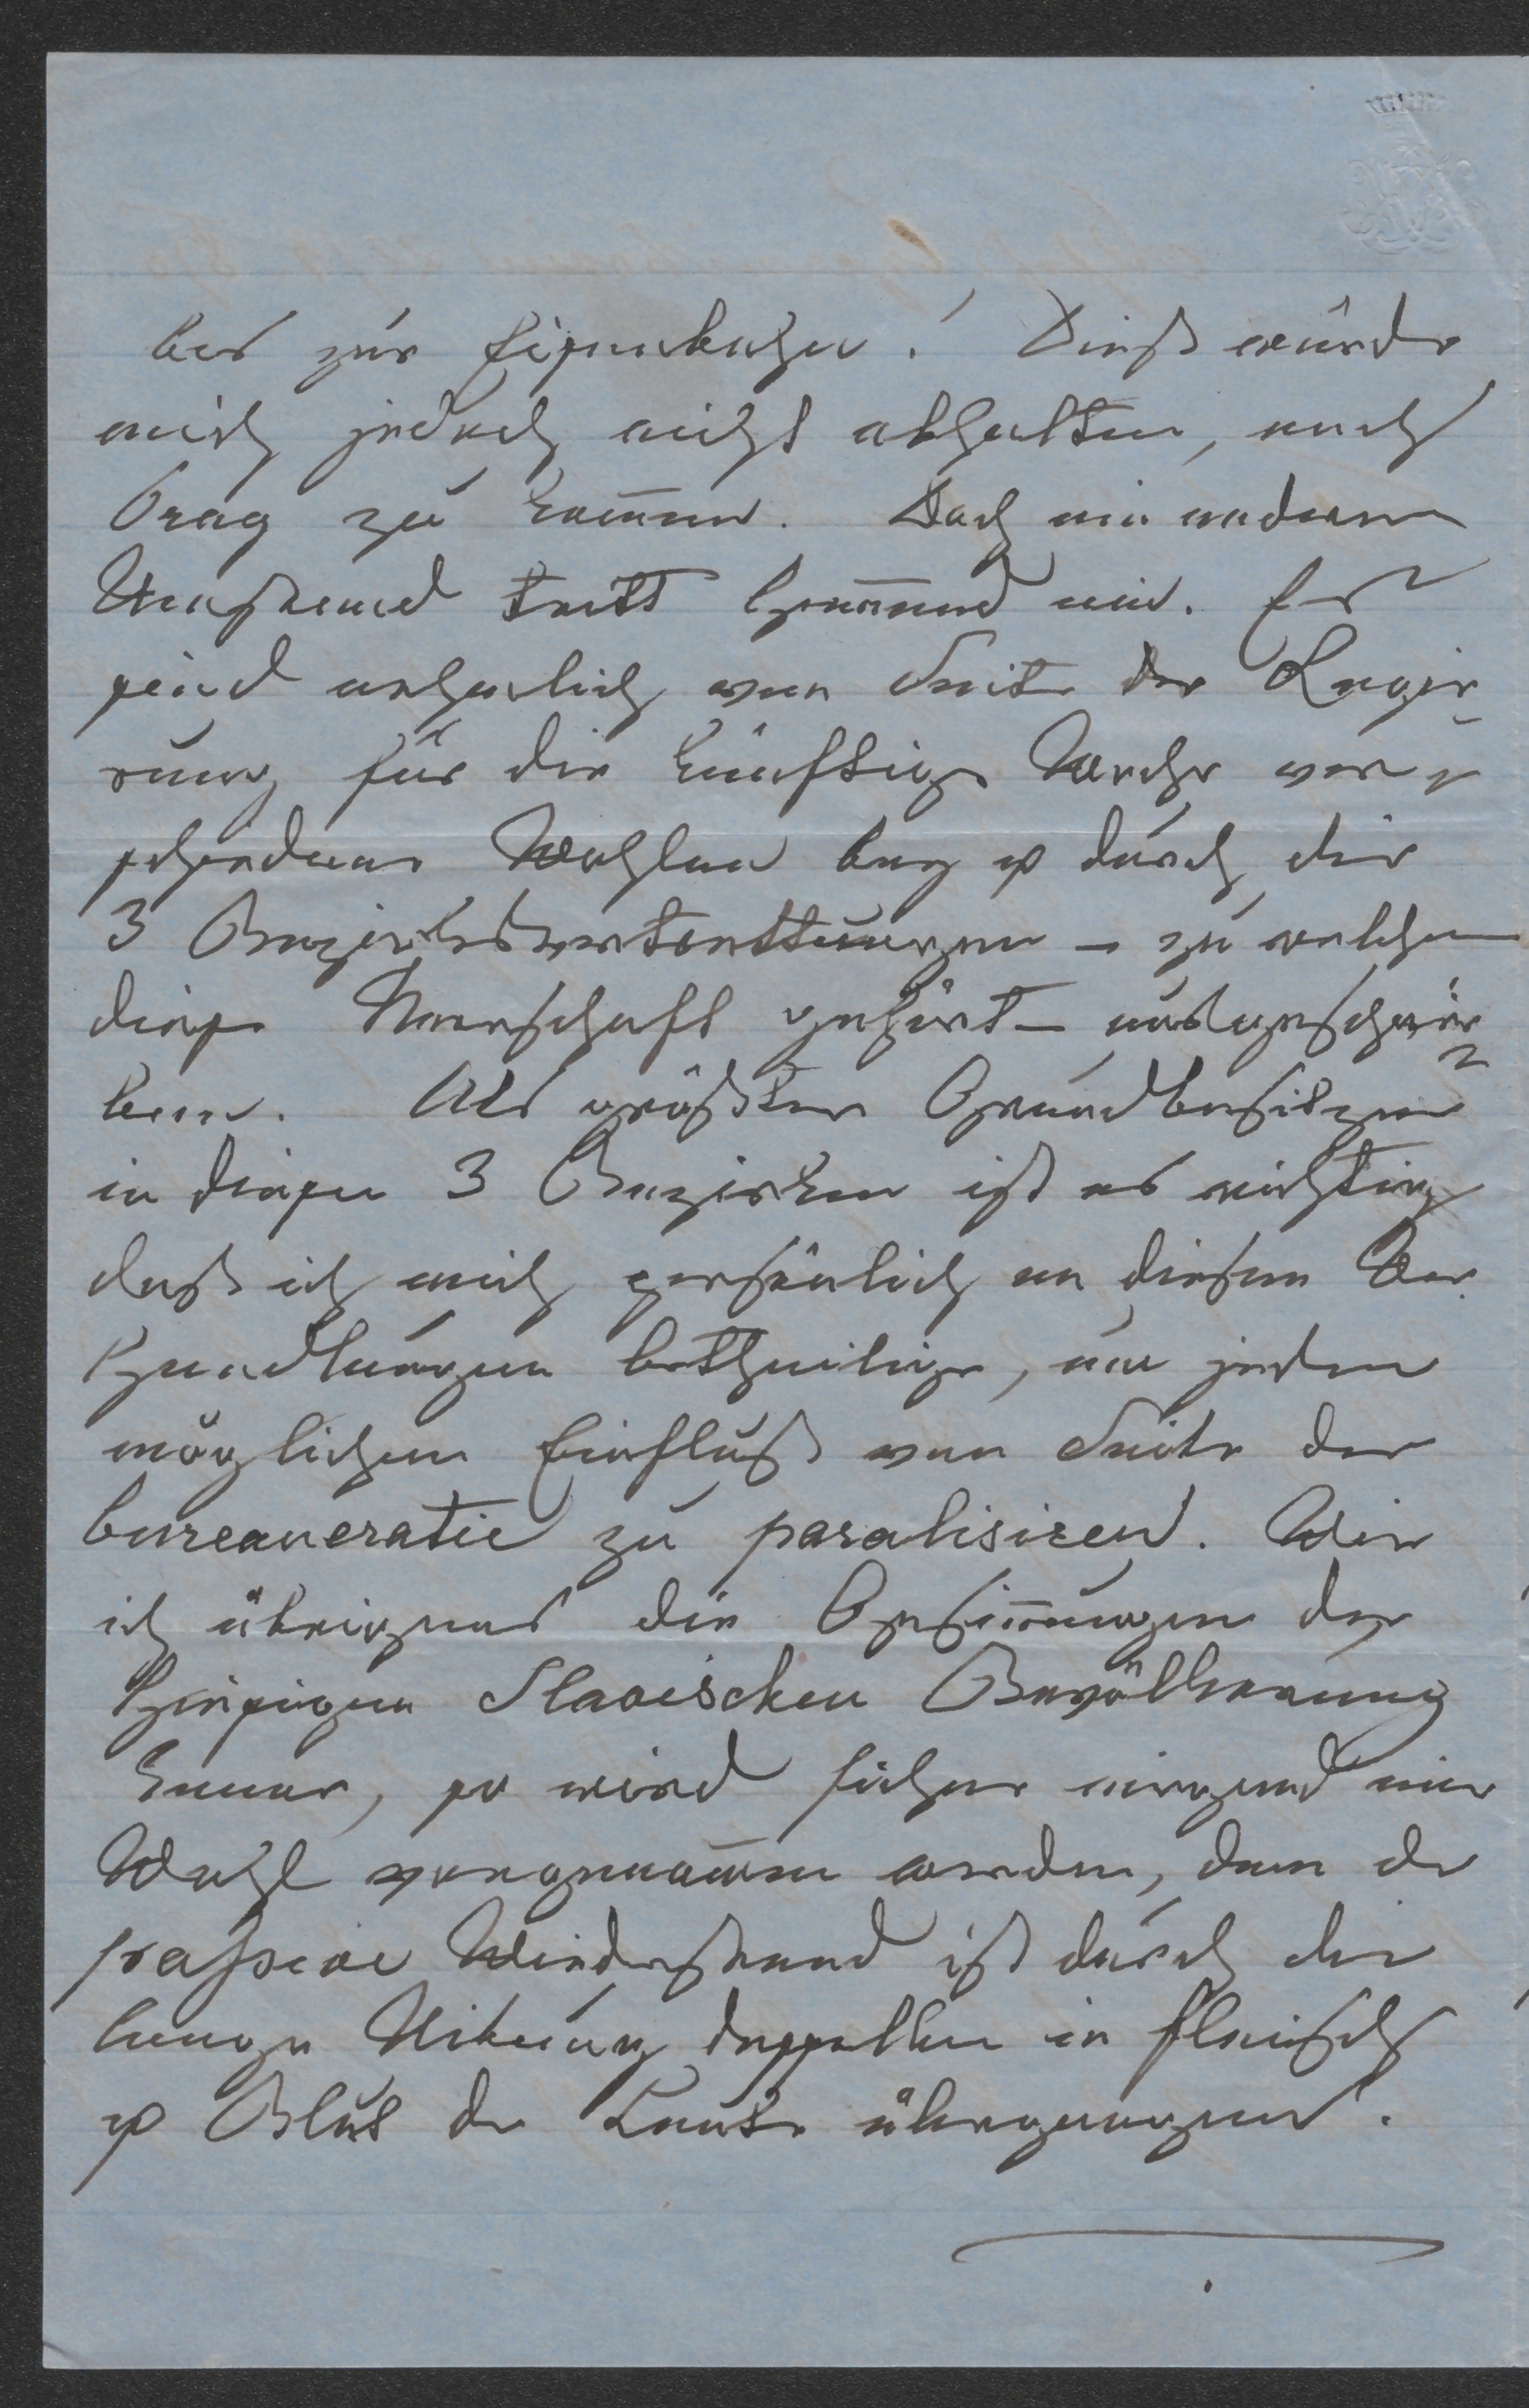 bis zur Eisenbahn! Dieß würde
mich jedoch nicht abhalten, nach
Prag zu kom̄en. Doch ein anderer
Umstand tritt hem̄end ein. Es
sind neherlich von Seite der Regie-
rung für die künftige Woche ver-
schiedene Wahlen durch die
3 Bezirksvertrettungen – zu welchen
diese Herrschaft gehört – ausgeschrie-
ben. Als größter Grundbesitzer
in diesen 3 Bezirken ist es wichtig
daß ich mich persönlich an diesen Ver-
handlungen betheilige, um jeden
möglichen Einfluß von Seite der
bureaucratie zu paralisiren. Wie
ich übrigens die Gesin̄ungen der
hiesigen Slavischen Bevölkerung
kenne, so wird sicher nirgend eine
Wahl vorgenom̄en werden, denn der
passive Wiederstand ist durch die
lange Uibung desselben in Fleisch
u Blut der Leute übergangen.